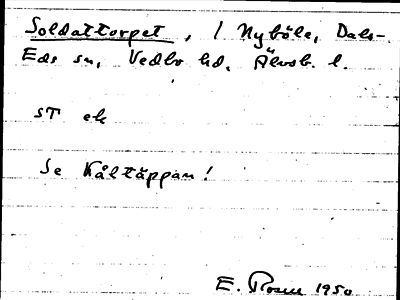 Soldattorpet, / Nyböle, Dals-
Eds sn, Vedbo hd. Älvsb. l.
sT ek
Se Kåltäppan!
E. Rosen 1950